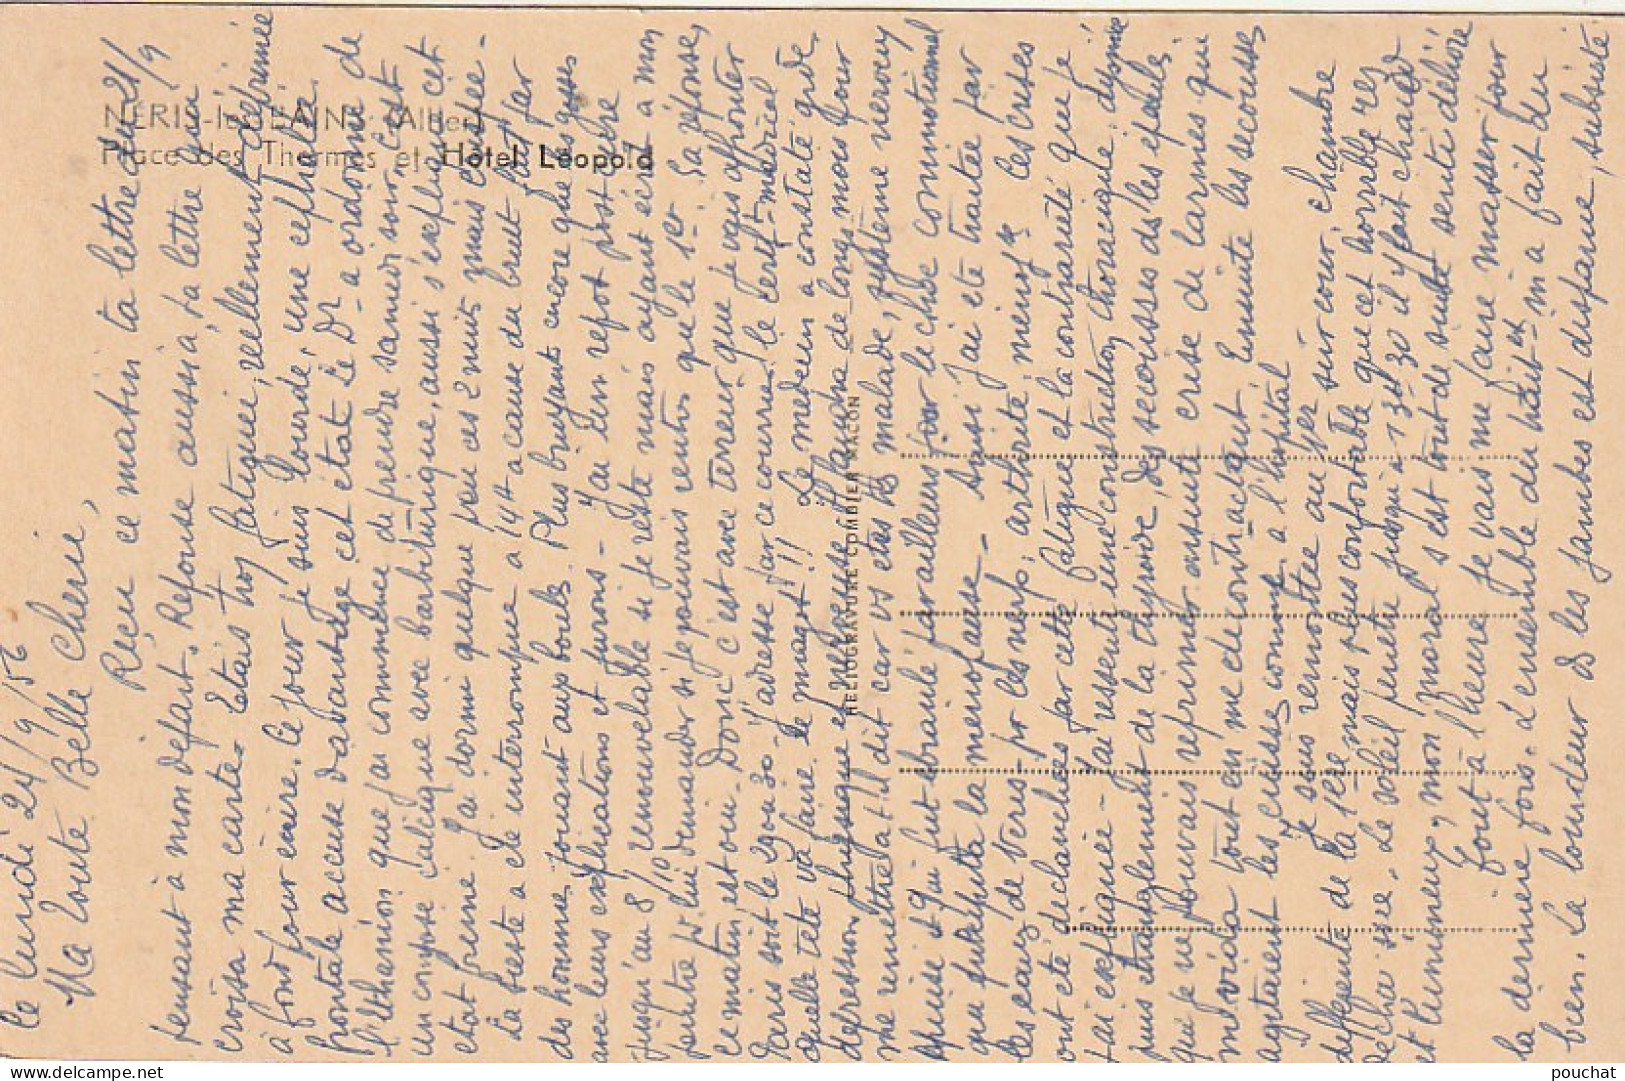 NÉRIS-les-BAINS (Allier)
Place des Thermes et Hôtel Léopold
HÉLIOGRAVURE COMBIER MACON
le lundi 24/9/56
Ma toute Belle Chérie,
Reçu ce matin ta lettre du 21/9
pensant à mon départ. Réponse aussi à ta lettre qui
croisa ma carte. Etais trop fatiguée, réellement déprimée
à fond pour écrire. Ce jour je suis lourde, une céphalée
frontale accuse davantage cet état. Le Dr a ordonné de
l'ithamion que j'ai commencé de prendre samedi soir, c'est
un composé calcique avec barbiturique, aussi s'explique cet
état freiné. J'ai dormi quelque peu ces 2 nuits mais
La sieste a été interrompue à 14h à cause du bruit fait par
des hommes jouant aux boules. Plus bruyant encore que les gosses
avec leurs explications et jurons - J'ai
jusqu'au 8/10 renouvelable si je reste mais ayant écrit à mon
pour lui demander si je pouvais rentrer que le 1er. Sa réponse,
ce matin est oui. Donc c'est avec terreur que je vais affronter
Paris soit le 29 ou 30. J'adresse par ce courrier le certif. médical
quelle tête va faire le magot!! Le médecin a constaté gde
dépression physique et nerveuse, faudra de longs mois pour
me remettre a-t-il dit car vs êtes très malade, système nerveux
épuisé et qui fut ébranlé par ailleurs par le choc commotionnel
que précipita la ménopause - Aussi j'ai été traitée par
les eaux de Néris pr les nerfs, arthrite, Ces crises
ont été déclanchées par cette fatigue et la contrariété que je
t'ai expliquée - J'ai ressenti une constriction thoracique, dyspnée
puis étranglement de la thyroïde, des secousses ds les épaules
que je ne pouvais réprimer ensuite crise de larmes qui
me vida tout en me décontractant. Ensuite les secousses
agitaient les cuisses comme à l'hôpital
Je suis remontée au 1er sur cour, chambre
différente de la 1ère mais plus confortable que cet horrible rez
de chaussée. Le soleil pénètre jusqu'à 13h30 il y fait chaud
et lumineux, mon moral s'est tout de suite senti délivré
Tout à l'heure je vais me faire masser pour
la dernière fois. L'ensemble du trait-ent m'a fait du
bien. La lourdeur ds les jambes est disparue, subsiste